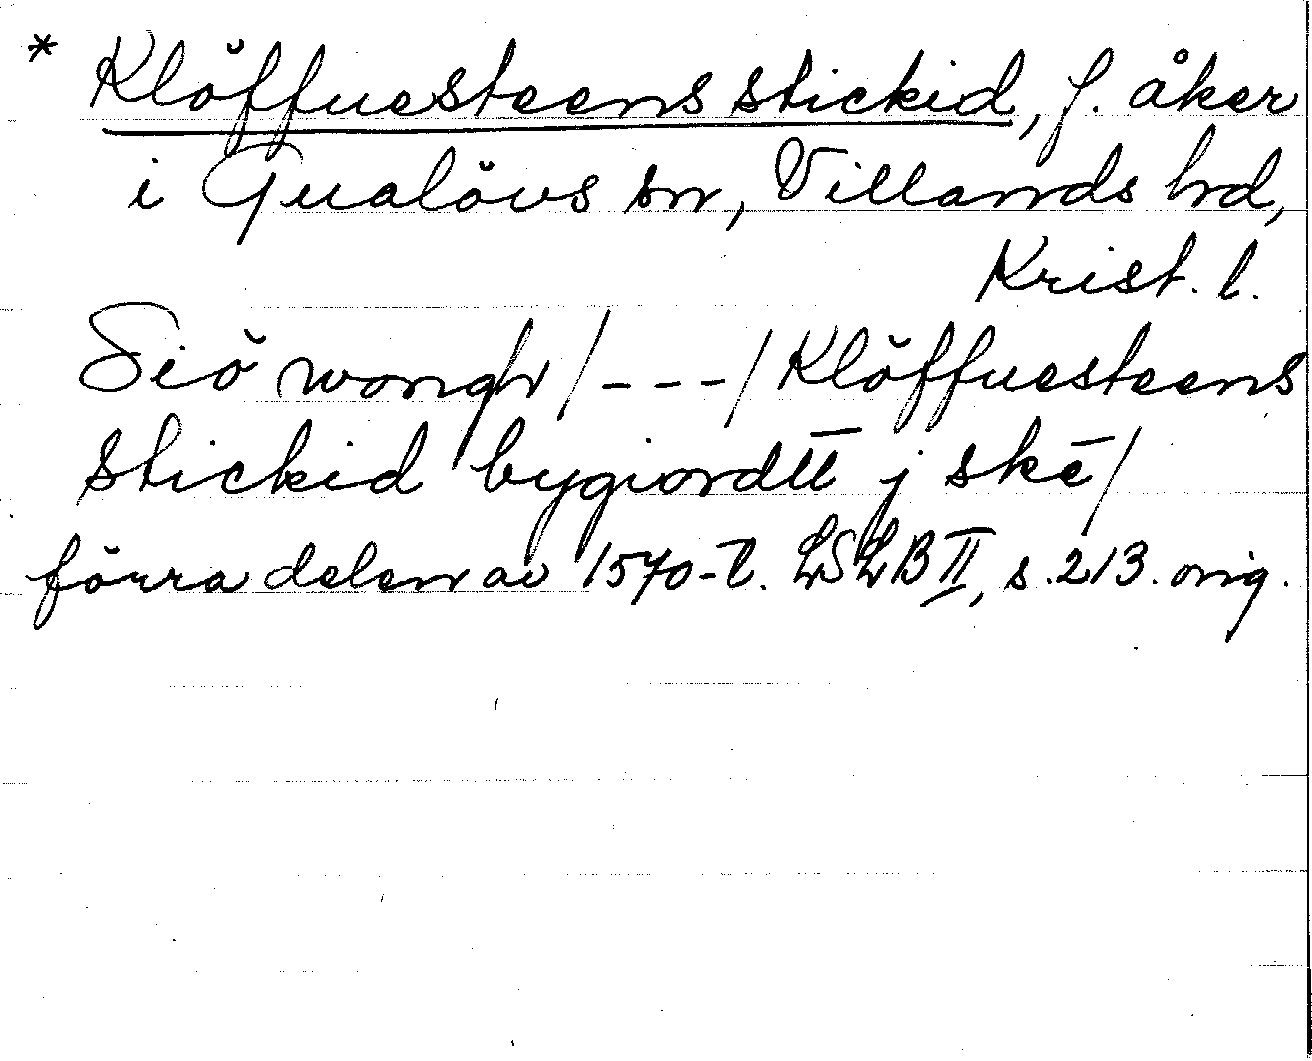 * Klöffuesteens stickid, f. åker
i Gualövs sn, Villands hd,
Krist. l.
Siö wongh /---/ Klöffuesteens
stickid bygiordtt j skē /
förra delen av 1570-t. LSLB II, s. 213. orig.